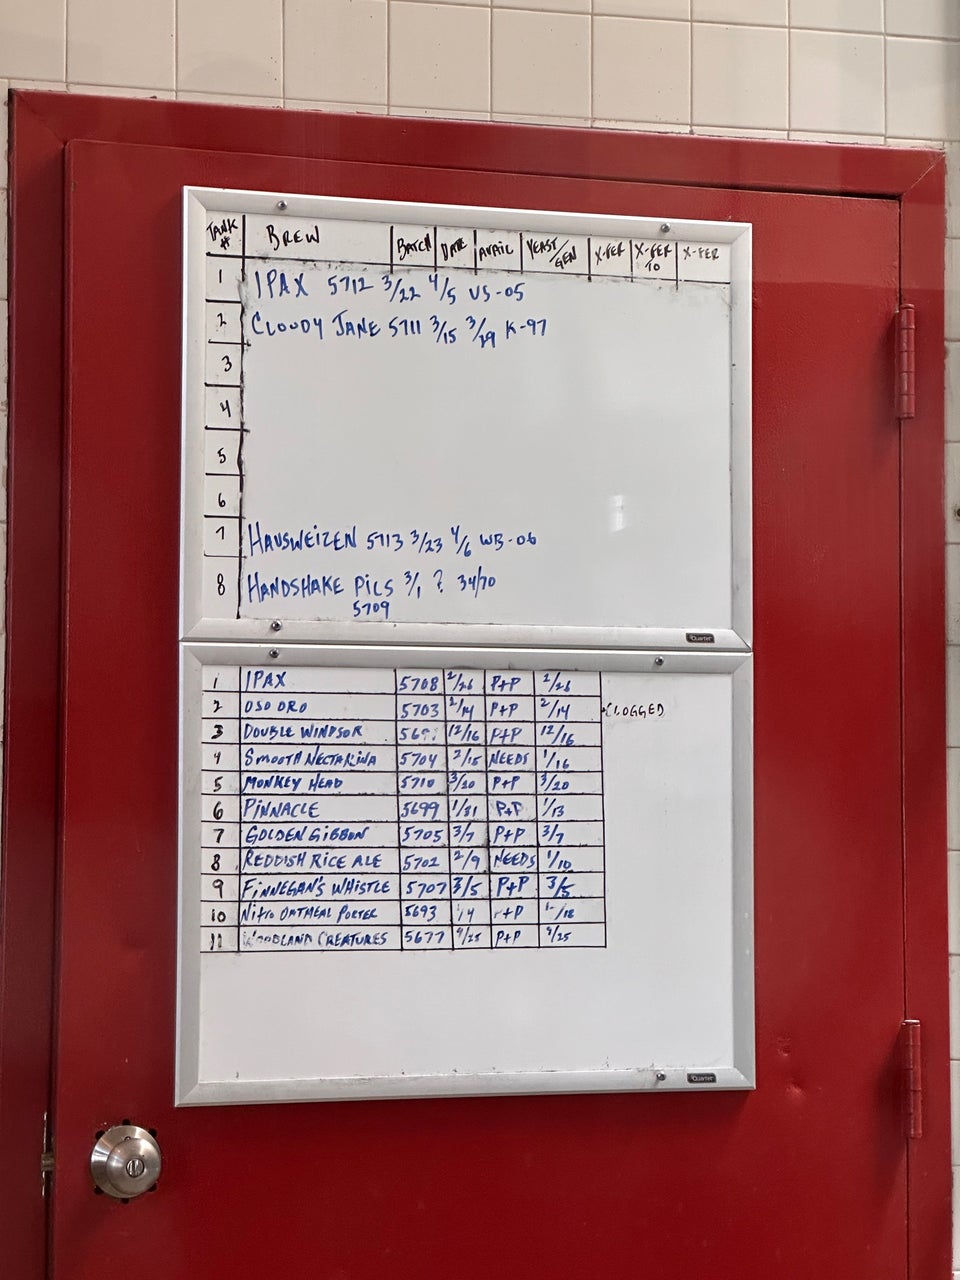 TANK # BREW BATCH DATE AVAIL YEAST/GEN X-FER X-FER TO X-FER
1 IPAX 5712 3/22 4/5 US-05
2 CLOUDY JANE 5711 3/15 3/29 K-97
3
4
5
6
7 HAUSWEIZEN 5713 3/23 4/6 WB-06
8 HANDSHAKE PILS 3/1 ? 34/70
5709
Quartet
1 IPAX 5708 2/26 P+P 2/26
2 OSO ORO 5703 2/14 P+P 2/14 CLOGGED
3 DOUBLE WINDSOR 12/16 P+P 12/16
4 SMOOTH NECTARINA 5704 2/15 NEEDS 1/16
5 MONKEY HEAD 5710 3/20 P+P 3/20
6 PINNACLE 5699 1/31 P+P 1/13
7 GOLDEN GIBBON 5705 3/7 P+P 3/7
8 REDDISH RICE ALE 5702 2/9 NEEDS 1/10
9 FINNEGAN'S WHISTLE 5707 3/5 P+P 3/5
10 NITRO OATMEAL PORTER 5693
11 WOODLAND CREATURES 5677 9/25 P+P 9/25
Quartet